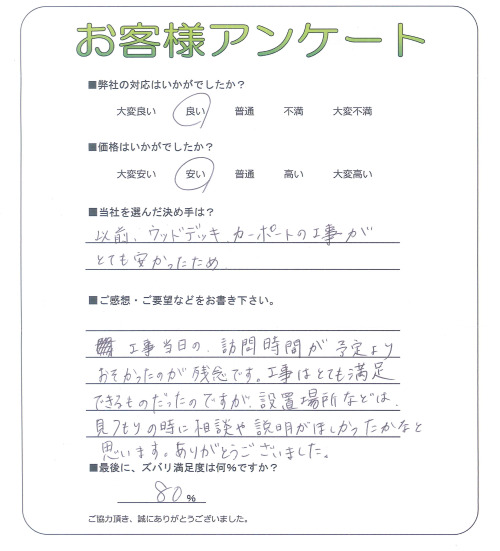 お客様アンケート
■弊社の対応はいかがでしたか？
大変良い 良い 普通 不満 大変不満
■価格はいかがでしたか？
大変安い 安い 普通 高い 大変高い
■当社を選んだ決め手は？
以前、ウッドデッキ、カーポートの工事が
とても安かったため
■ご感想・ご要望などをお書き下さい。
工事当日の、訪問時間が予定より
おそかったのが残念です。工事はとても満足
できるものだったのですが、設置場所などは、
見つもりの時に相談や説明がほしかったかなと
思います。ありがとうございました。
■最後に、ズバリ満足度は何％ですか？
80 %
ご協力頂き、誠にありがとうございました。